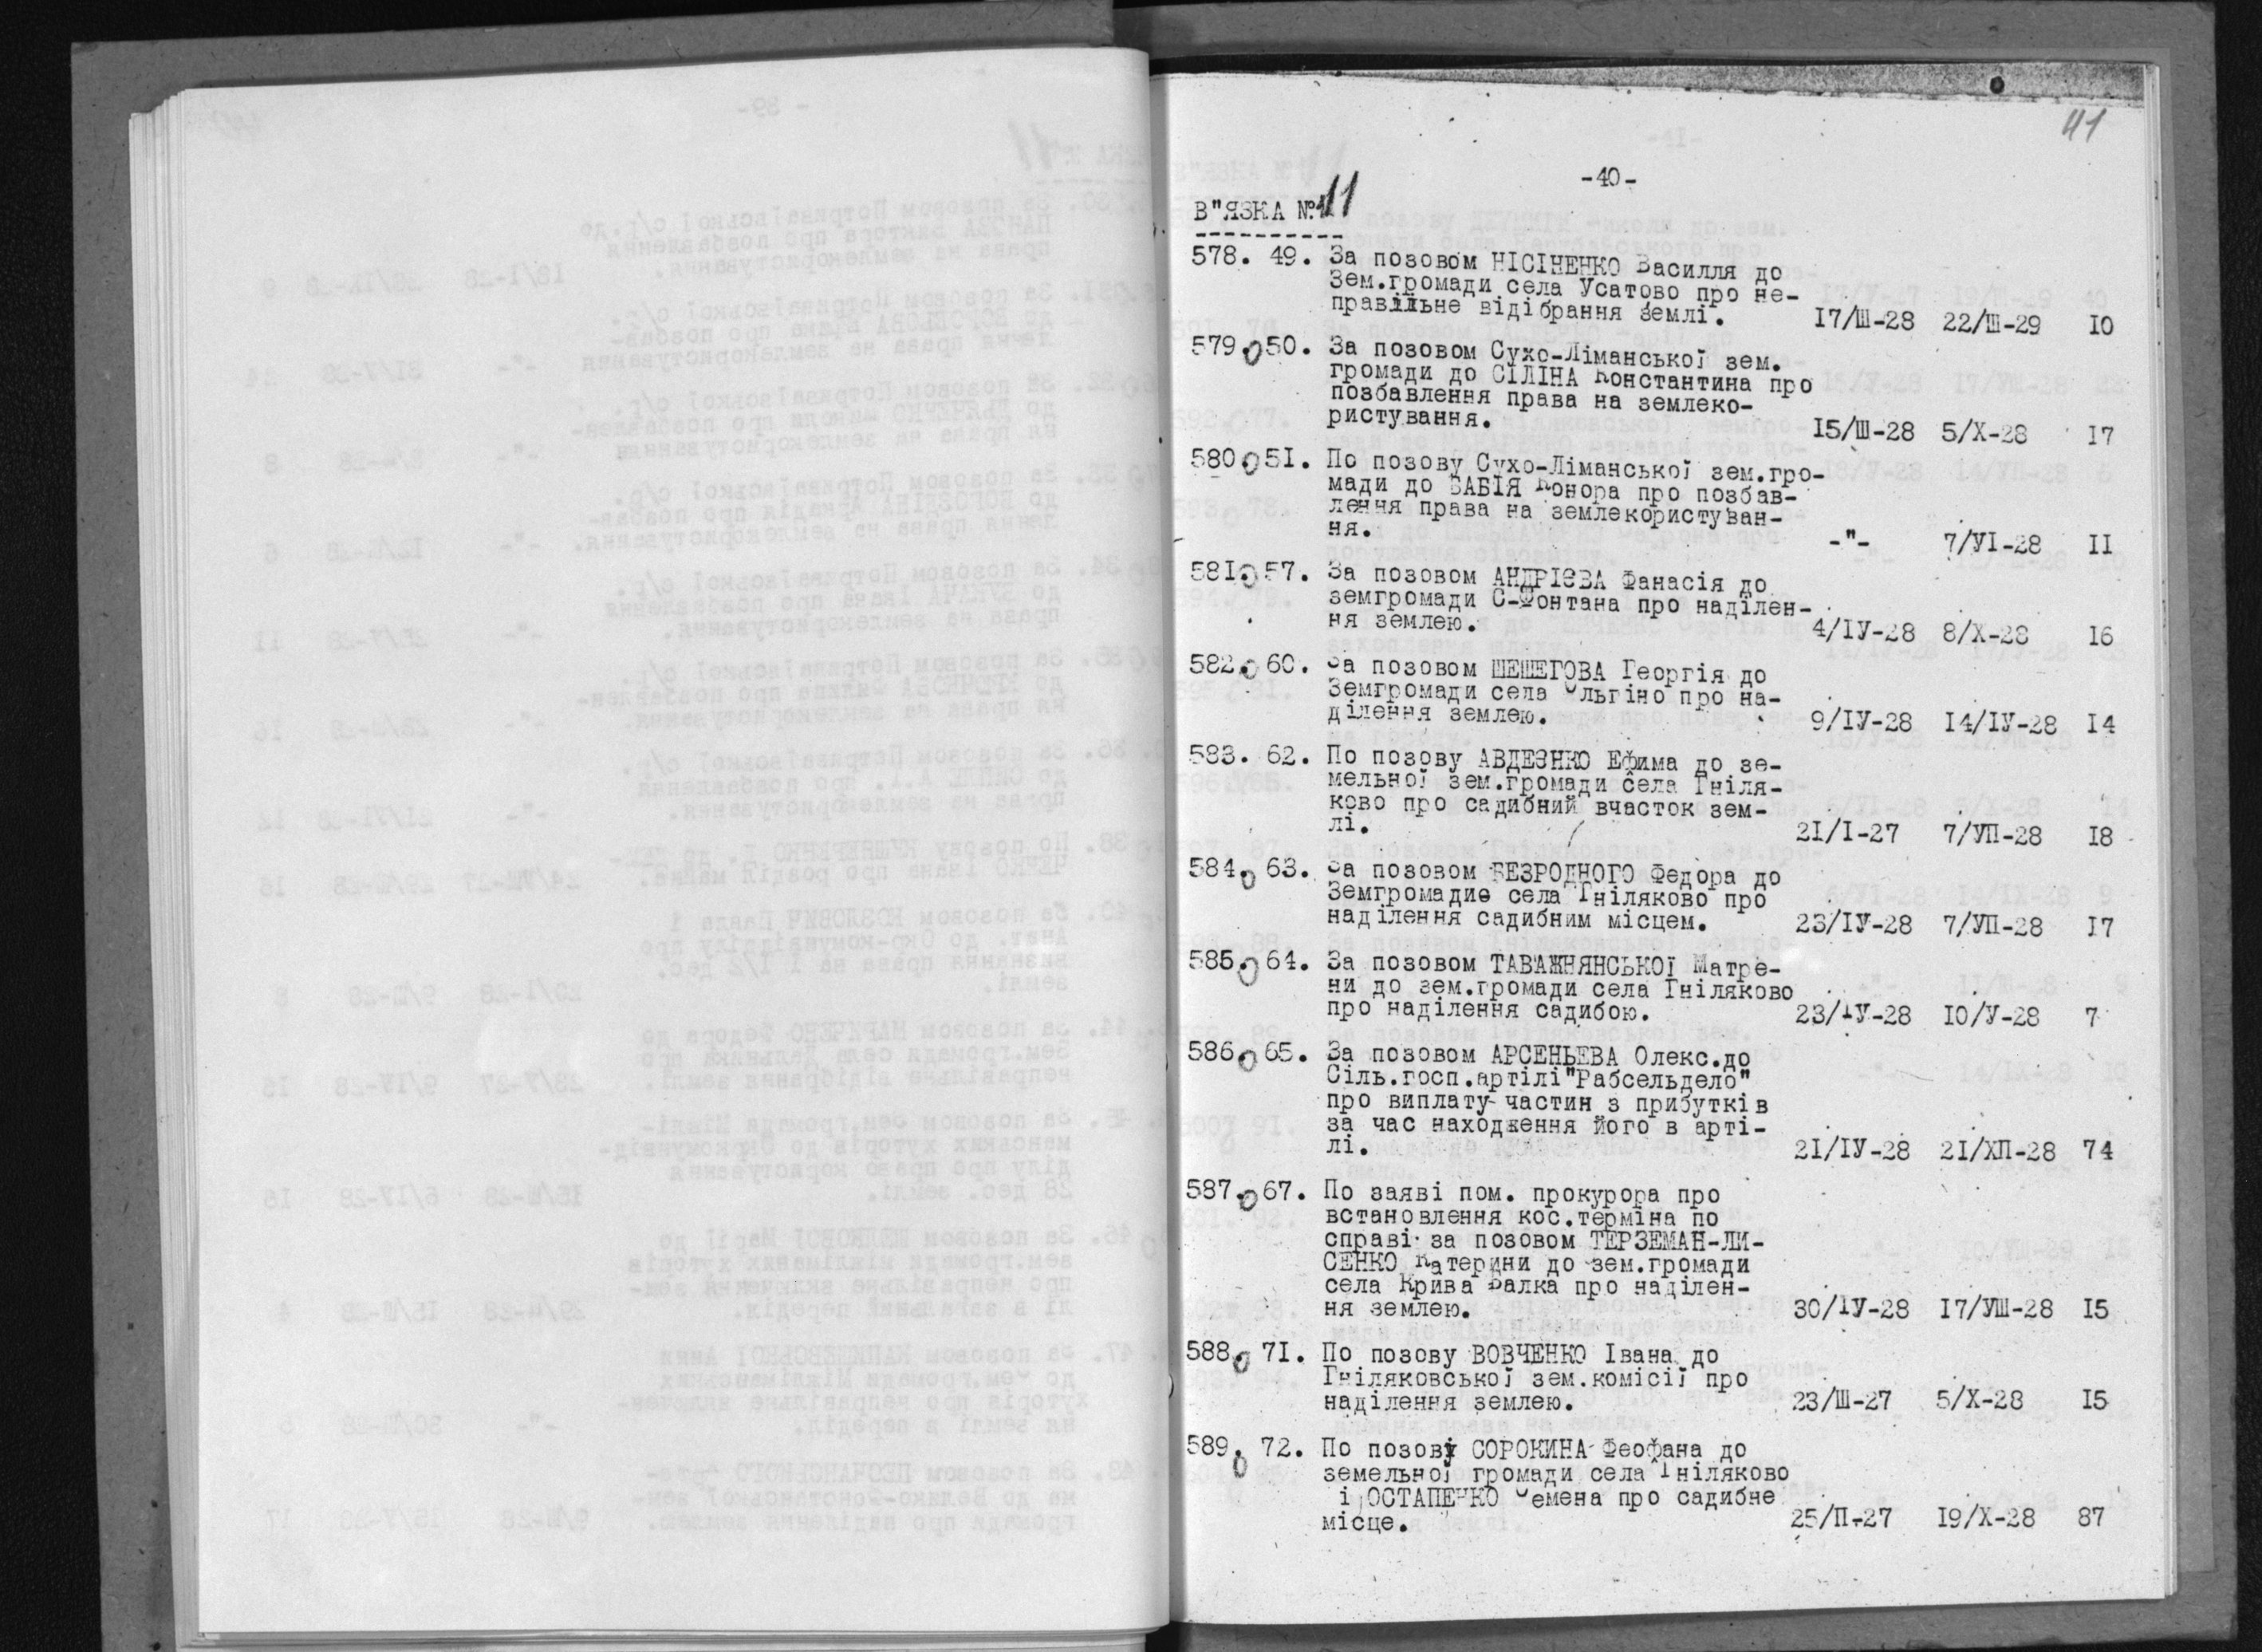 41
-40-
В"ЯЗКА №11
578. 49. За позовом НІСІНЕНКО Василля до
Зем.громади села Усатово про не-
правільне відібрання землі. 17/Ш-28 22/Ш-29 10
579. 50. За позовом Сухо-Ліманської зем.
громади до СІЛІНА Константина про
позбавлення права на землеко-
ристування. 15/Ш-28 5/Х-28 17
580. 51. По позову Сухо-Ліманської зем.гро-
мади до БАБІЯ Конора про позбав-
лення права на землекористуван-
ня. -"- 7/УІ-28 11
581. 57. За позовом АНДРІЄВА Фанасія до
земгромади С-Фонтана про наділен-
ня землею. 4/ІУ-28 8/Х-28 16
582. 60. За позовом ШЕШЕГОВА Георгія до
Земгромади села Ольгіно про на-
ділення землею. 9/ІУ-28 14/ІУ-28 14
583. 62. По позову АВДЕЄНКО Ефима до зе-
мельної зем.громади села Гніля-
ково про садибний вчасток зем-
лі. 21/І-27 7/УП-28 18
584. 63. За позовом БЕЗРОДНОГО Федора до
Земгромадие села Гніляково про
наділення садибним місцем. 23/ІУ-28 7/УП-28 17
585. 64. За позовом ТАВАЖНЯНСЬКОЇ Матре-
ни до зем.громади села Гніляково
про наділення садибою. 23/ІУ-28 10/У-28 7
586. 65. За позовом АРСЕНЬЕВА Олекс.до
Сіль.госп.артілі"Рабсельдело"
про виплату частин з прибутків
за час находження його в арті-
лі. 21/ІУ-28 21/ХП-28 74
587. 67. По заяві пом. прокурора про
встановлення кос.терміна по
справі за позовом ТЕРЗЕМАН-ЛИ-
СЕНКО Катерини до зем.громади
села Крива Балка про наділен-
ня землею. 30/ІУ-28 17/УШ-28 15
588. 71. По позову ВОВЧЕНКО Івана до
Гніляковської зем.комісії про
наділення землею. 23/Ш-27 5/Х-28 15
589. 72. По позову СОРОКИНА Феофана до
земельної громади села Гніляково
і ОСТАПЕНКО Семена про садибне
місце. 25/П-27 19/Х-28 87